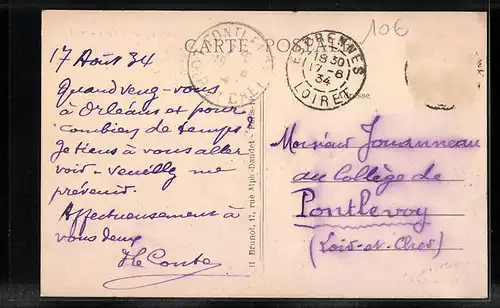 106
CARTE POSTALE
EGRENNES
18 30
17 - 8
34
LOIRET
PONTLEVOY
17 Août 34
Quand venez-vous
à Orléans et pour
combien de temps ?
Je tiens à vous aller
voir - veuillez me
prévenir.
Affectueusement à
vous deux
H. Brunot, 17, rue Alph-Daudet - Paris
Monsieur Jouanneau
au Collège de
Pontlevoy
(Loir-et-Cher)